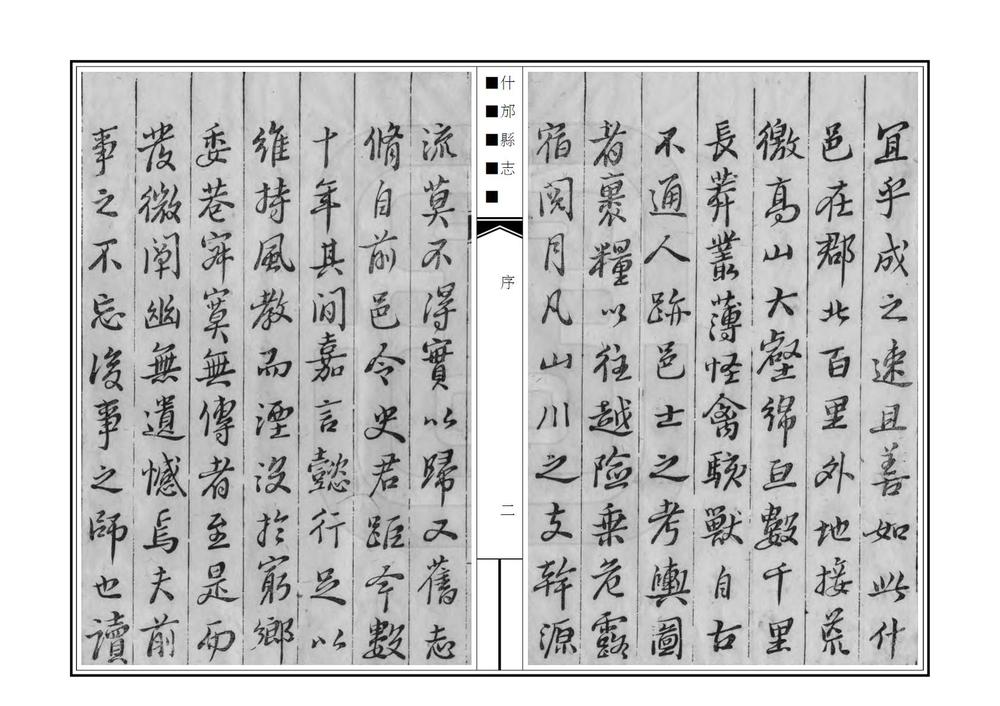 宜乎成之速且善如此什
邑在郡北百里外地接荒
徼高山大壑綿亘數千里
長莽叢薄怪禽駭獸自古
不通人跡邑士之考輿圖
者裹糧以往越險乗危露
宿閱月凡山川之支幹源
什邡縣志
序
二
流莫不得實以歸又舊志
脩自前邑令史君距今數
十年其間嘉言懿行足以
維持風教而湮没於窮鄉
委巷寂寞無傳者至是而
發微闡幽無遺憾焉夫前
事之不忘後事之師也讀